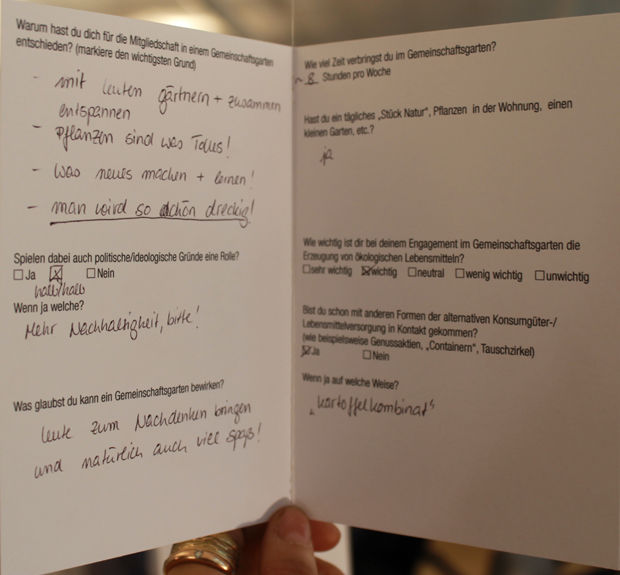 Warum hast du dich für die Mitgliedschaft in einem Gemeinschaftsgarten
entschieden? (markiere den wichtigsten Grund)
- mit leuten gärtnern + zusammen
entspannen
- Pflanzen sind was Tolles!
- was neues machen + lernen!
- man wird so schön dreckig!
Spielen dabei auch politische/ideologische Gründe eine Rolle?
☐ Ja ☒ ☐ Nein
halb/halb
Wenn ja welche?
Mehr Nachhaltigkeit, bitte!
Was glaubst du kann ein Gemeinschaftsgarten bewirken?
leute zum Nachdenken bringen
und natürlich auch viel spaß!
Wie viel Zeit verbringst du im Gemeinschaftsgarten?
~ 8 Stunden pro Woche
Hast du ein tägliches „Stück Natur", Pflanzen in der Wohnung, einen
kleinen Garten, etc.?
ja
Wie wichtig ist dir bei deinem Engagement im Gemeinschaftsgarten die
Erzeugung von ökologischen Lebensmitteln?
☐ sehr wichtig ☒ wichtig ☐ neutral ☐ wenig wichtig ☐ unwichtig
Bist du schon mit anderen Formen der alternativen Konsumgüter-/
Lebensmittelversorgung in Kontakt gekommen?
(wie beispielsweise Genussaktien, „Containern", Tauschzirkel)
☒ Ja ☐ Nein
Wenn ja auf welche Weise?
„Kartoffelkombinat"